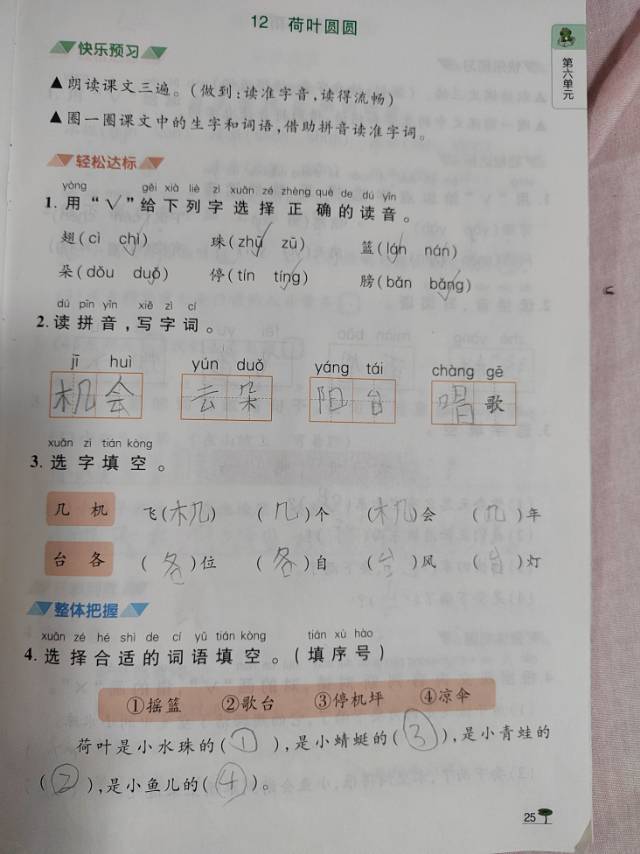 12 荷叶圆圆
第六单元
快乐预习
▲朗读课文三遍。(做到:读准字音,读得流畅)
▲圈一圈课文中的生字和词语,借助拼音读准字词。
轻松达标
yòng gěi xià liè zì xuǎn zé zhèng què de dú yīn
1.用“√”给下列字选择正确的读音。
翅(cì chì) 珠(zhū zū) 篮(lán nán)
朵(dǒu duǒ) 停(tín tíng) 膀(bǎn bǎng)
dú pīn yīn xiě zì cí
2.读拼音,写字词。
jī huì yún duǒ yáng tái chàng gē
机会 云朵 阳台 唱歌
xuǎn zì tián kòng
3.选字填空。
几 机 飞(机) (几)个 (机)会 (几)年
台 各 (各)位 (各)自 (台)风 (台)灯
整体把握
xuǎn zé hé shì de cí yǔ tián kòng tián xù hào
4.选择合适的词语填空。(填序号)
①摇篮 ②歌台 ③停机坪 ④凉伞
荷叶是小水珠的(①),是小蜻蜓的(③),是小青蛙的
(②),是小鱼儿的(④)。
25